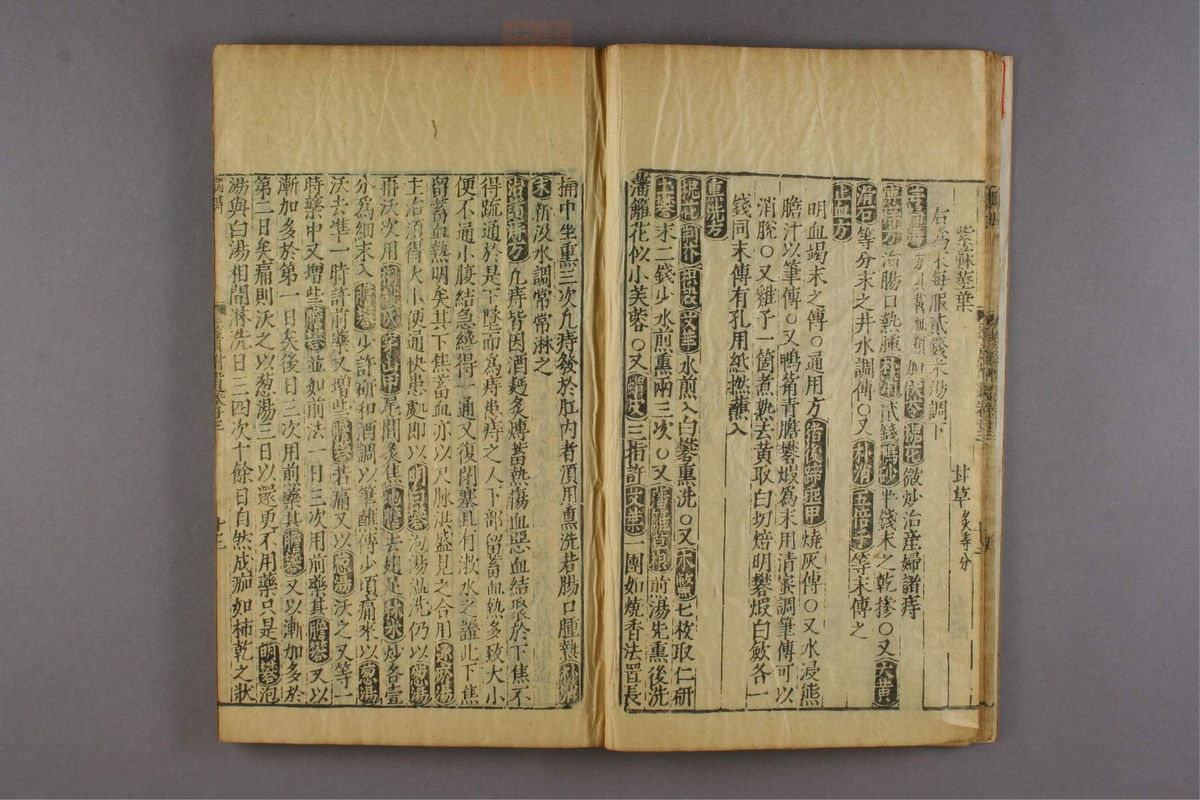 紫蘇莖葉 甘草
右為末每服貳錢米湯調下
加茯苓槐花微炒治産婦諸痔
傅痔方治腸口熱腫朴硝貳錢硼砂半錢末之乾摻〇又大黃
滑石等分末之井水調傅〇又朴消五倍子等末傅之
止血方
明血竭末之傅〇通用方猪後蹄垂甲燒灰傅〇又水浸熊
膽汁以筆傅〇又鴨嘴青膽礬煆為末用清蜜調筆傅可以
消脫〇又雞子一箇煮熟去黃取白切焙明礬煆白斂各一
錢同末傅有孔用紙撚蘸入
熏洗方
槐花荊芥枳殼艾葉水煎入白礬熏洗〇又木鱉七枚取仁研
土礬末二錢少水煎熏兩三次〇又藩籬草根煎湯先熏後洗
藩籬花似小芙蓉〇又蝟皮三指許艾葉一團如燒香法置長
桶中坐熏三次凡痔發於肛內者須用熏洗若腸口腫熱
末新汲水調常常淋之
治諸痔方凡痔皆因酒麫炙煿蓄熱傷血惡血結聚於下焦不
得疏通於是下墜而為痔患痔之人下部留蓄血熱多致大小
便不通小腹結急纔得一通又復閉塞且有漱水之證此下焦
留蓄血熱明矣其下焦蓄血亦以尺脉洪盛見之合用
主治須得大小便通快患處即以明白礬泡湯溫洗仍以葱湯
再沃次用穿山甲尾間炙焦地膽去翅足糯米炒各壹
分為細末入膽礬少許研和酒調以筆蘸傅少頃痛來以葱湯
沃去準一時許前藥又增些膽礬若痛又以葱湯沃之又等一
時藥中又增些膽礬並如前法一日三次用前藥其膽礬又以
漸加多於第一日矣後日三次用前藥其膽礬又以漸加多於
第二日矣痛則沃之以葱湯三日以還更不用藥只是明礬泡
湯與白湯相間淋洗日三四次十餘日自然成痂如柿乾之狀